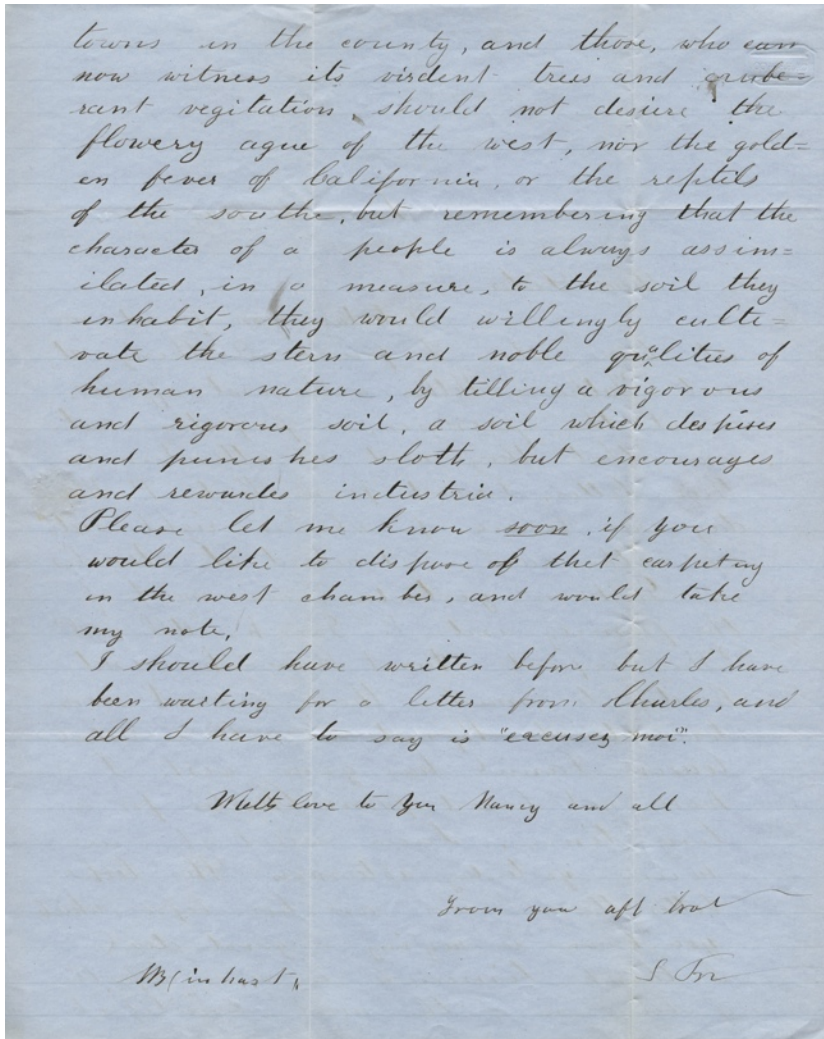 towns in the county, and those, who can
now witness its virdent trees and exube-
rant vegitation, should not desire the
flowery ague of the west, nor the gold=
en fever of California, or the reptils
of the southe, but remembering that the
character of a people is always assim=
ilated, in a measure, to the soil they
inhabit, they would willingly culti=
vate the stern and noble qualities of
human nature, by tilling a vigorous
and rigorous soil, a soil which despises
and punishes sloth, but encourages
and rewardes industria.
Please let me know soon, if you
would like to dispose of thet carpeting
in the west chamber, and would take
my note,
I should have written before but I have
been waiting for a letter from Charles, and
all I have to say is "excusez moi".
With love to you Nancy and all
From you aff brot
(in hast,,
S